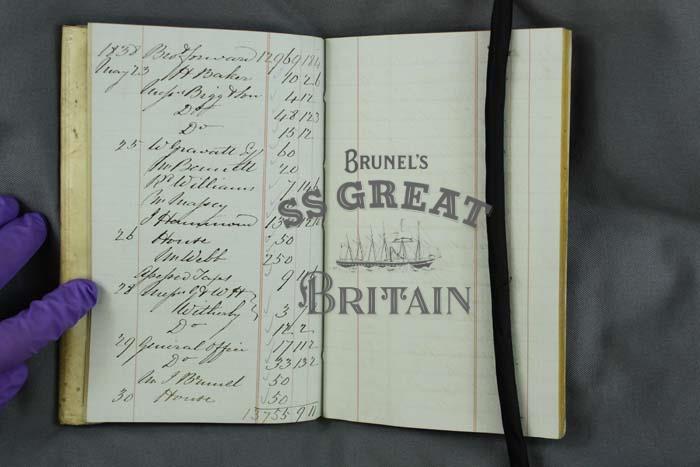 1838 Bro.t forward 12969 18 4
May 23 H Baker 10 2 6
Mess.rs Bigg & Son 4 12
D.o 48 12 3
D.o 15 12
25 W Gravatt Esq 60
Mr Bennett 20
R.d Williams 7
Mr Massey
J Hammond
26 House 50
Mr Webb 250
Assessed Taxes 9
28 Mess.rs G & W H
Witherby 3
D.o 12 2
29 General Office 17 11 2
D.o 33 13 2
Mr J Brunel 50
30 House 50
13755 9 11
BRUNEL'S
SS GREAT
BRITAIN